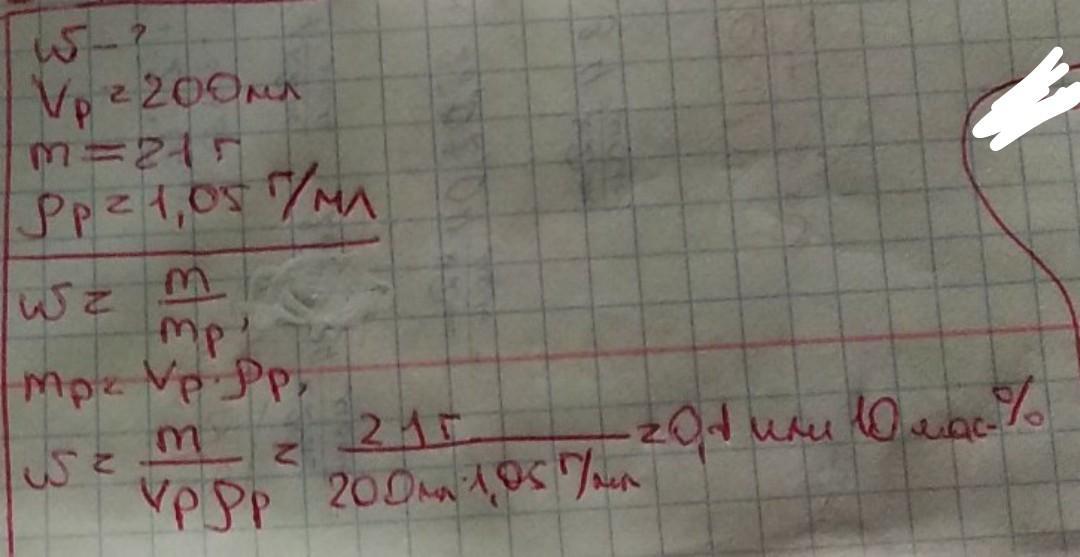 ω – ?
Vр = 200 мл
m = 21 г
ρр = 1,05 г/мл
ω = m/mр,
mр = Vр · ρр,
ω = m/Vрρр = 21 г/200 мл · 1,05 г/мл = 0,1 или 10 мас.%